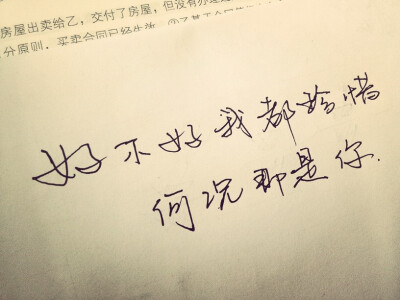 房屋出卖给乙，交付了房屋，但没有办理
分原则．买卖合同已经生效
好不好我都珍惜
何况那是你.